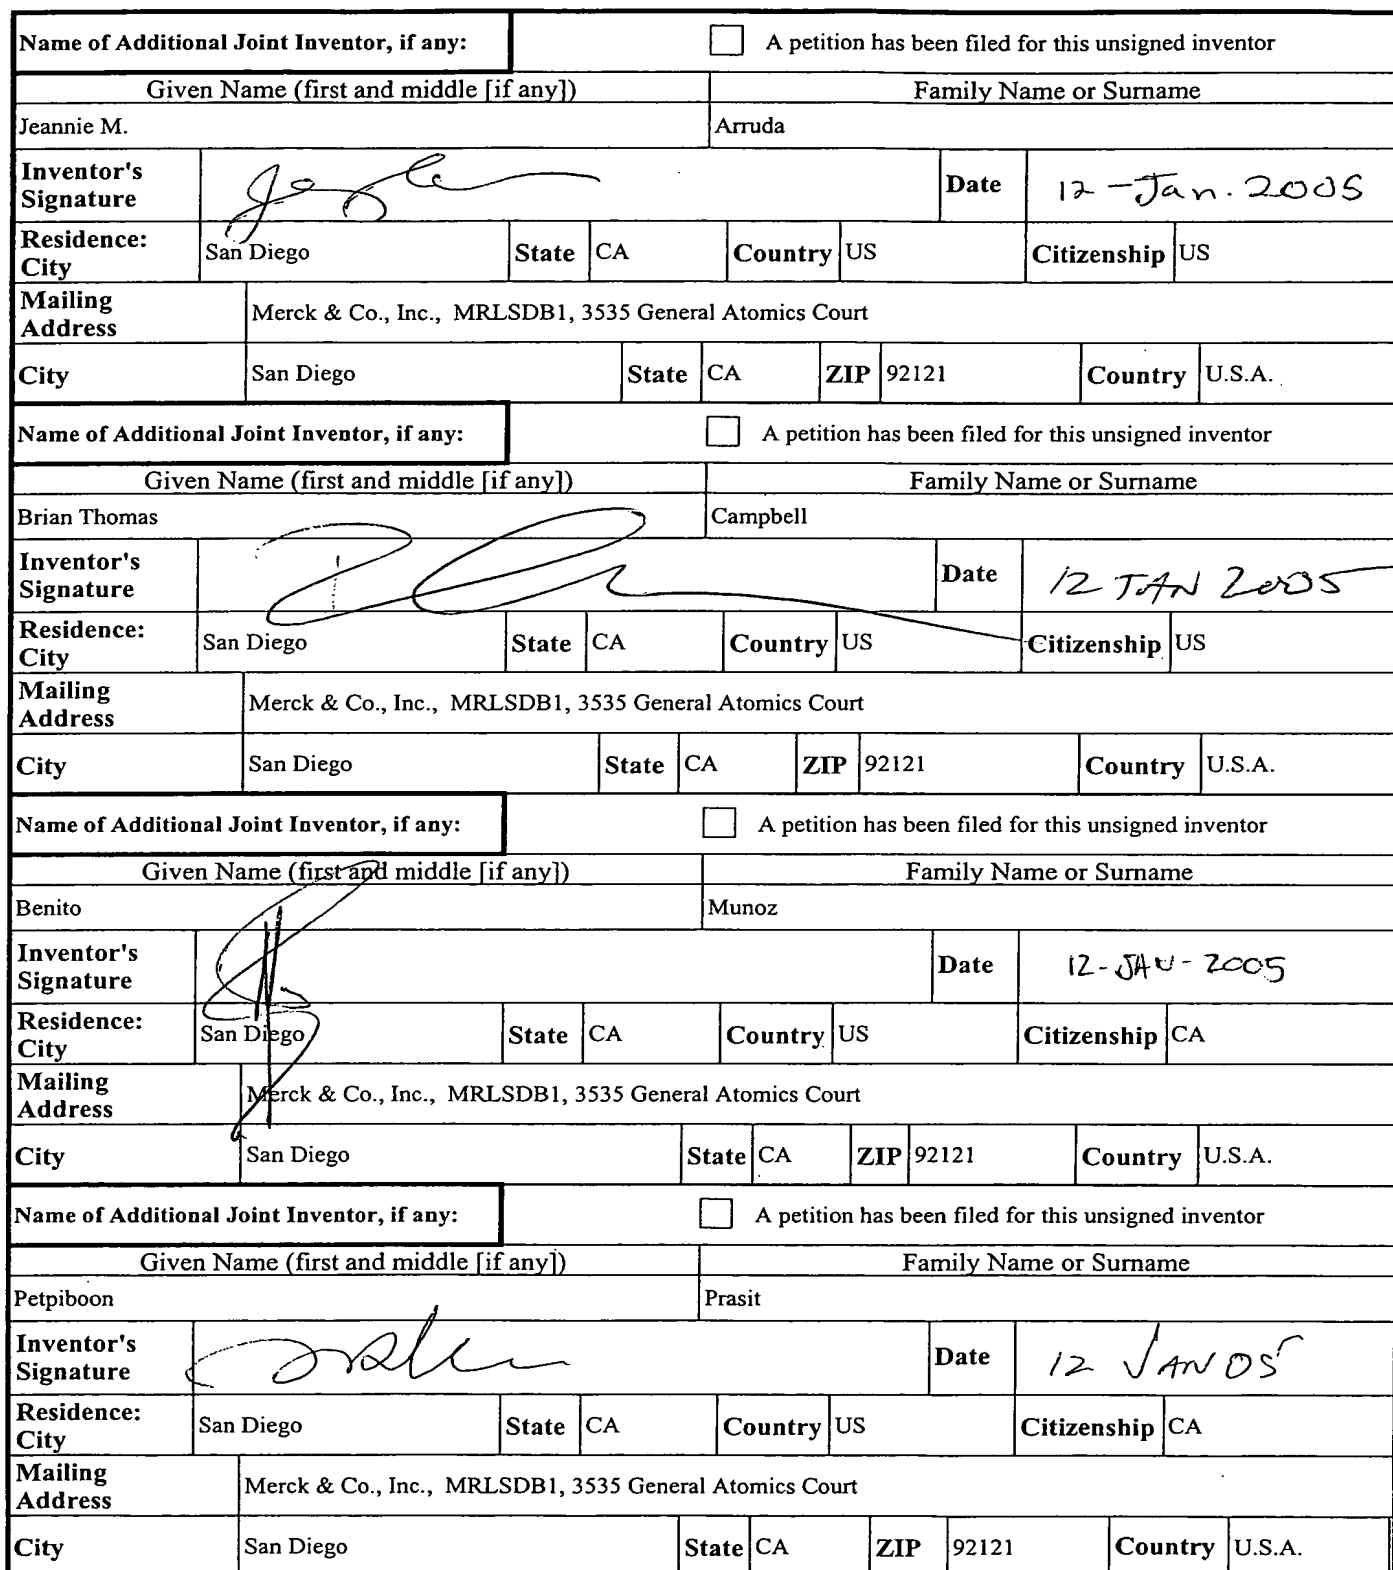 Name of Additional Joint Inventor, if any: A petition has been filed for this unsigned inventor
Given Name (first and middle [if any]) Family Name or Surname
Jeannie M. Arruda
Inventor's Signature Date 12-Jan. 2005
Residence: City San Diego State CA Country US Citizenship US
Mailing Address Merck & Co., Inc., MRLSDB1, 3535 General Atomics Court
City San Diego State CA ZIP 92121 Country U.S.A.
Name of Additional Joint Inventor, if any: A petition has been filed for this unsigned inventor
Given Name (first and middle [if any]) Family Name or Surname
Brian Thomas Campbell
Inventor's Signature Date 12 JAN 2005
Residence: City San Diego State CA Country US Citizenship US
Mailing Address Merck & Co., Inc., MRLSDB1, 3535 General Atomics Court
City San Diego State CA ZIP 92121 Country U.S.A.
Name of Additional Joint Inventor, if any: A petition has been filed for this unsigned inventor
Given Name (first and middle [if any]) Family Name or Surname
Benito Munoz
Inventor's Signature Date 12-JAN-2005
Residence: City San Diego State CA Country US Citizenship CA
Mailing Address Merck & Co., Inc., MRLSDB1, 3535 General Atomics Court
City San Diego State CA ZIP 92121 Country U.S.A.
Name of Additional Joint Inventor, if any: A petition has been filed for this unsigned inventor
Given Name (first and middle [if any]) Family Name or Surname
Petpiboon Prasit
Inventor's Signature Date 12 JAN 05
Residence: City San Diego State CA Country US Citizenship CA
Mailing Address Merck & Co., Inc., MRLSDB1, 3535 General Atomics Court
City San Diego State CA ZIP 92121 Country U.S.A.